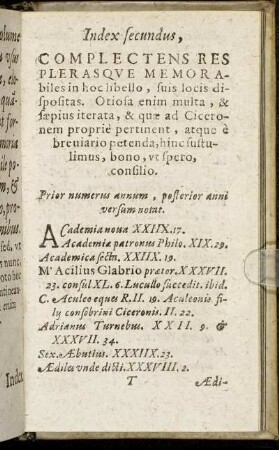 Index secundus,
COMPLECTENS RES
PLERASQVE MEMORA-
biles in hoc libello, suis locis di-
spositas. Otiosa enim multa, &
sæpius iterata, & quæ ad Cicero-
nem propriè pertinent, atque è
breuiario petenda, hinc sustu-
limus, bono, vt spero,
consilio.
Prior numerus annum, posterior anni
versum notat.
ACademia noua XXIIX. 17.
Academiæ patronus Philo. XIX. 29.
Academica sectn. XXIIX. 19.
M' Acilius Glabrio prætor. XXXVII.
23. consul XL. 6. Lucullo succedit. ibid.
C. Aculeo eques R. II. 19. Aculeonis fi-
lij consobrini Ciceronis. II. 22.
Adrianus Turnebus. XXII. 9. &
XXXVII. 34.
Sex. Æbutius. XXXIIX. 23.
Ædiles vnde dicti. XXXVIII. 2.
T Ædi-
Index